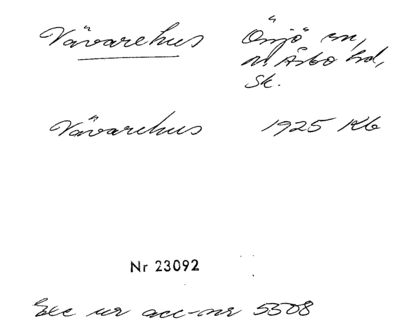 Vävarehus Önnjö sn,
N Åsbo hd,
Sk.
Vävarehus 1925 Kb
Nr 23092
Exc ur acc-nr 5508